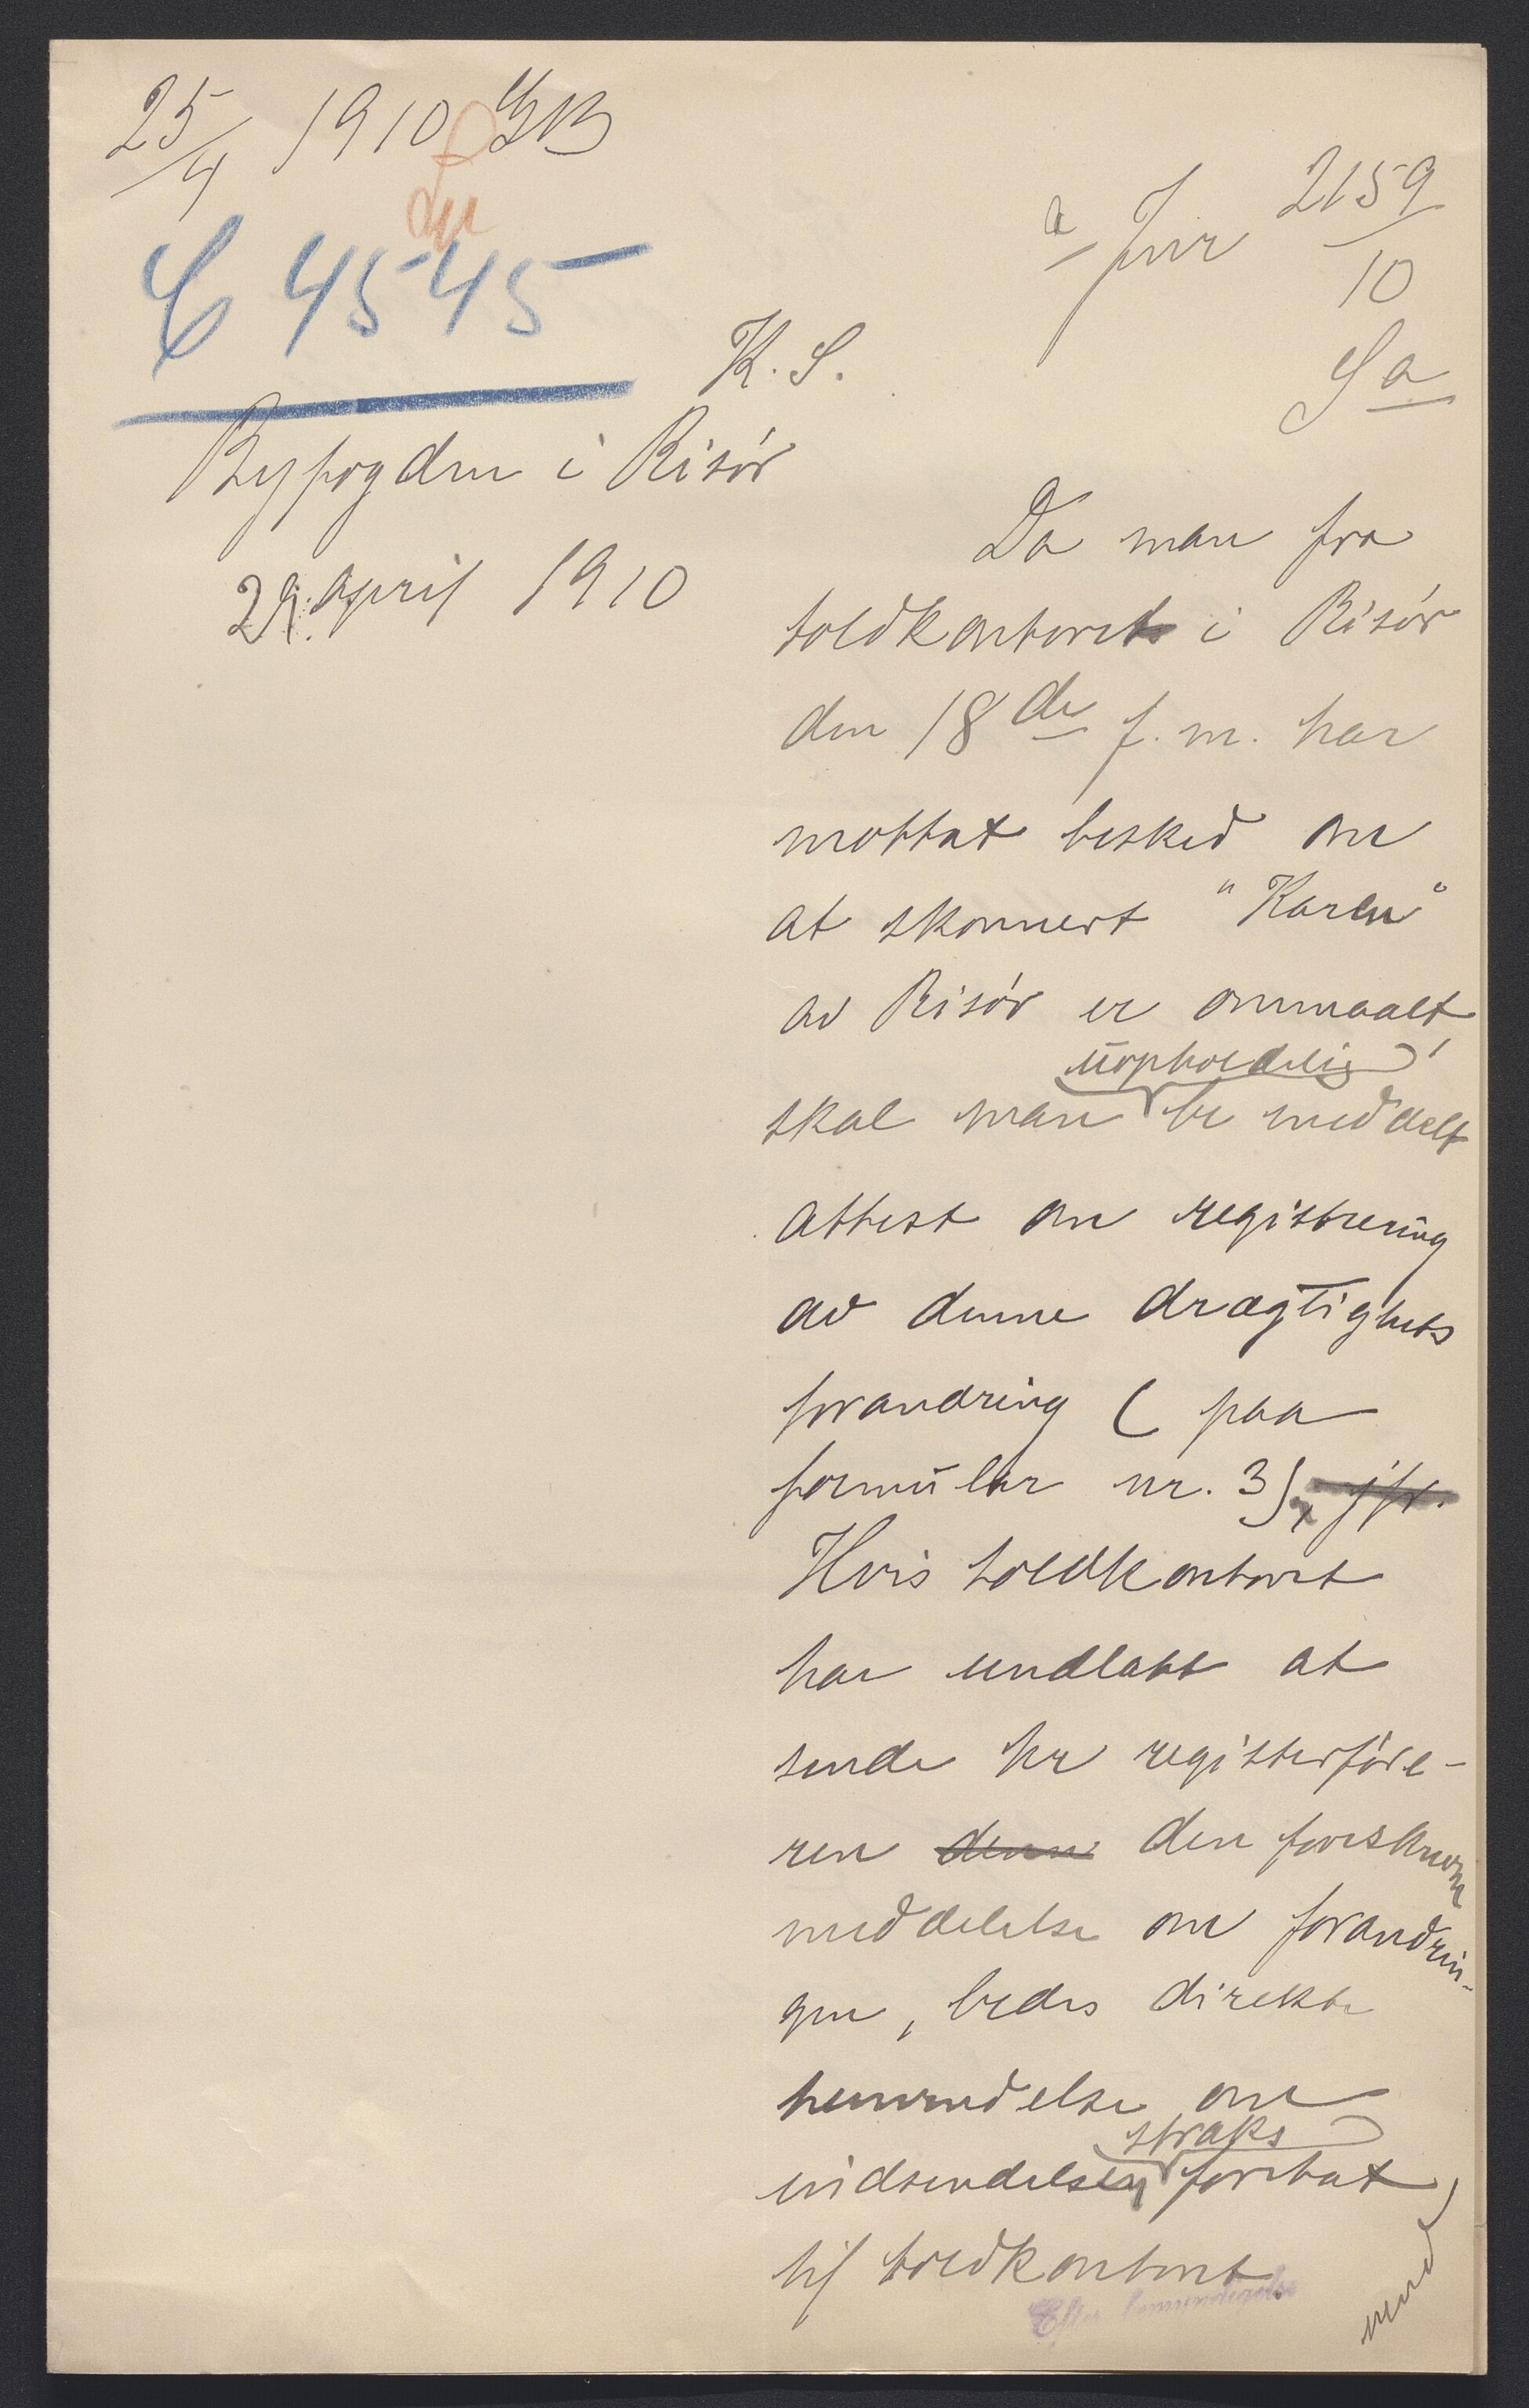 25/4 1910
C 4545
a/ Jnr 2159/10
Sa
K. S.
Byfogden i Risör
29. april 1910
Da man fra
toldkontoret i Risör
den 18de f. m. har
mottat besked om
at skonnert "Karen"
av Risör er ommaalt,
uopholdelig
skal man be meddelt
attest om registrering
av denne drægtighets
forandring (paa
formular nr. 3), jfr.
Hvis toldkontoret
har undlatt at
sende hr registerföre-
ren denne den foreskrevne
meddelelse om forandrin-
gen, bedes direkte
henvendelse om
straks
indsendelsen foretat
til toldkontoret.
Efter bemyndigelse
vend